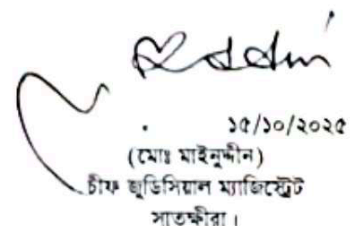 ১৫/১০/২০২৫
(মোঃ মাইনুদ্দীন)
চীফ জুডিসিয়াল ম্যাজিস্ট্রেট
সাতক্ষীরা।